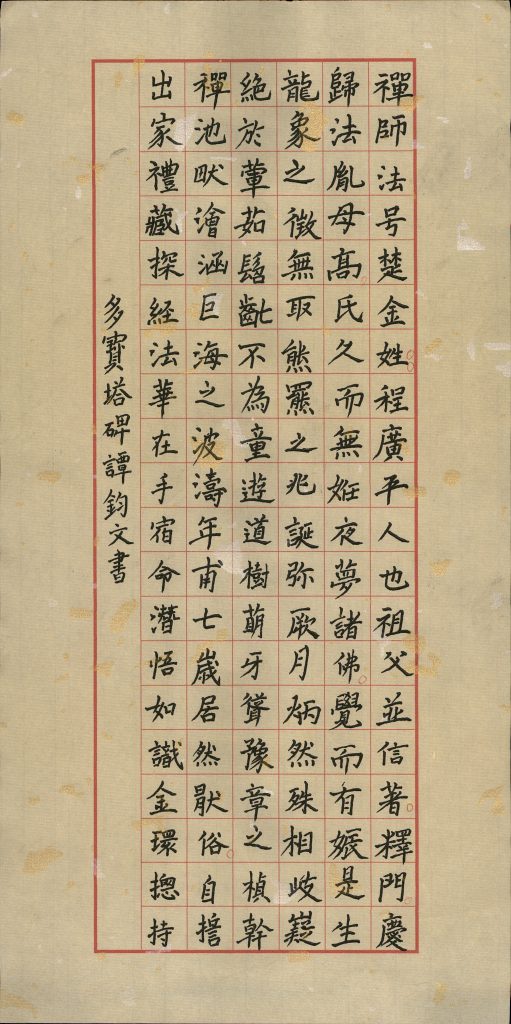 禪師法号楚金姓程廣平人也祖父並信著釋門慶
歸法胤母髙氏久而無姙夜夢諸佛覺而有娠是生
龍象之徵無取熊羆之兆誕弥厥月炳然殊相岐嶷
絶於葷茹髫齔不為童遊道樹萌牙聳豫章之楨幹
禪池畎澮涵巨海之波濤年甫七歳居然猒俗自誓
出家禮藏探經法華在手宿命潛悟如識金環揔持
多寶塔碑譚鈞文書